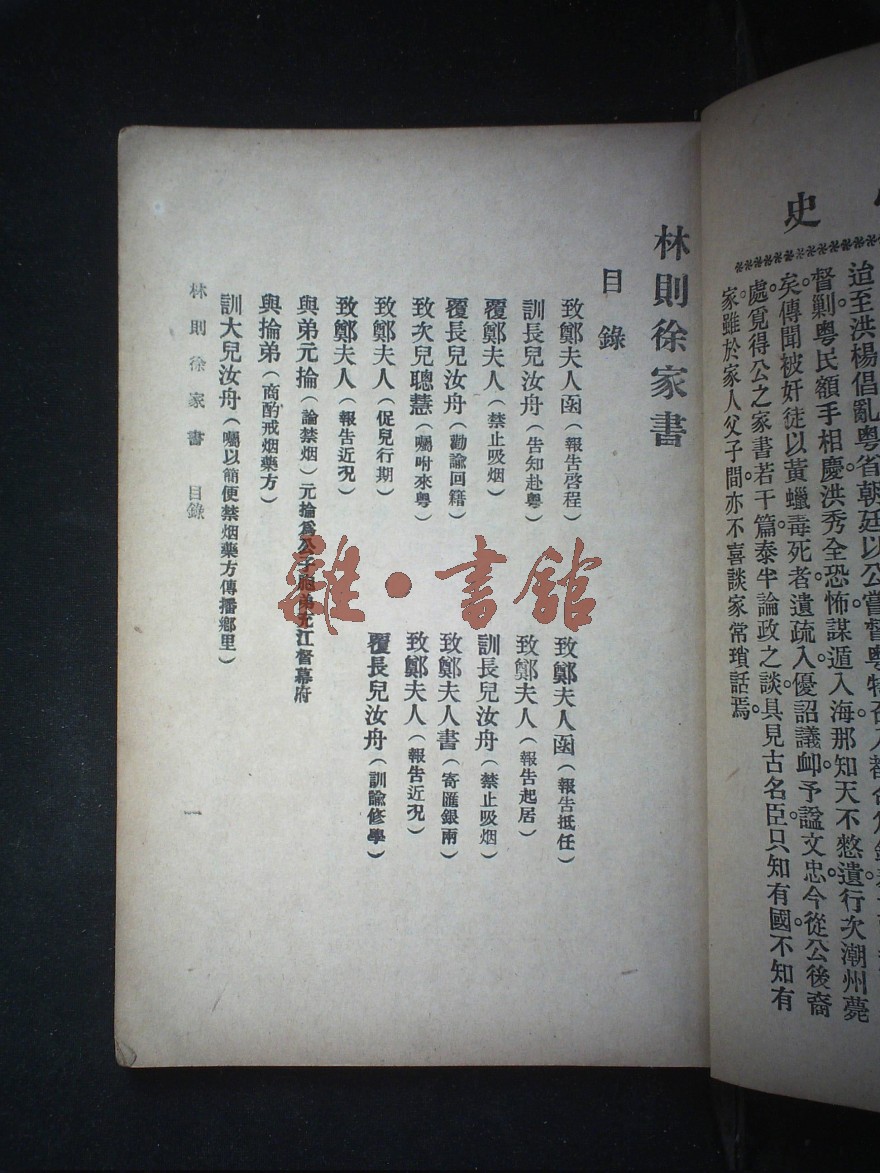 史
迨至洪楊倡亂粵省朝廷以公嘗督粵特召入
督剿粵民額手相慶洪秀全恐怖謀遁入海那知天不憗遺行次潮州薨
矣傳聞被奸徒以黃蠟毒死者遺疏入優詔議卹予諡文忠今從公後裔
處覓得公之家書若干篇泰半論政之談具見古名臣只知有國不知有
家雖於家人父子間亦不喜談家常瑣話焉
林則徐家書
目錄
致鄭夫人函(報告啓程)
致鄭夫人函(報告抵任)
訓長兒汝舟(告知赴粵)
致鄭夫人(報告起居)
覆鄭夫人(禁止吸烟)
訓長兒汝舟(禁止吸烟)
覆長兒汝舟(勸諭回籍)
致鄭夫人書(寄匯銀兩)
致次兒聰慧(囑咐來粵)
致鄭夫人(報告近况)
致鄭夫人(促兒行期)
覆長兒汝舟(訓諭修學)
致鄭夫人(報告近况)
與弟元掄(論禁烟)元掄爲公子胞弟充江督幕府
與掄弟(商酌戒烟藥方)
訓大兒汝舟(囑以簡便禁烟藥方傳播鄉里)
林則徐家書 目錄
一
雜·書館